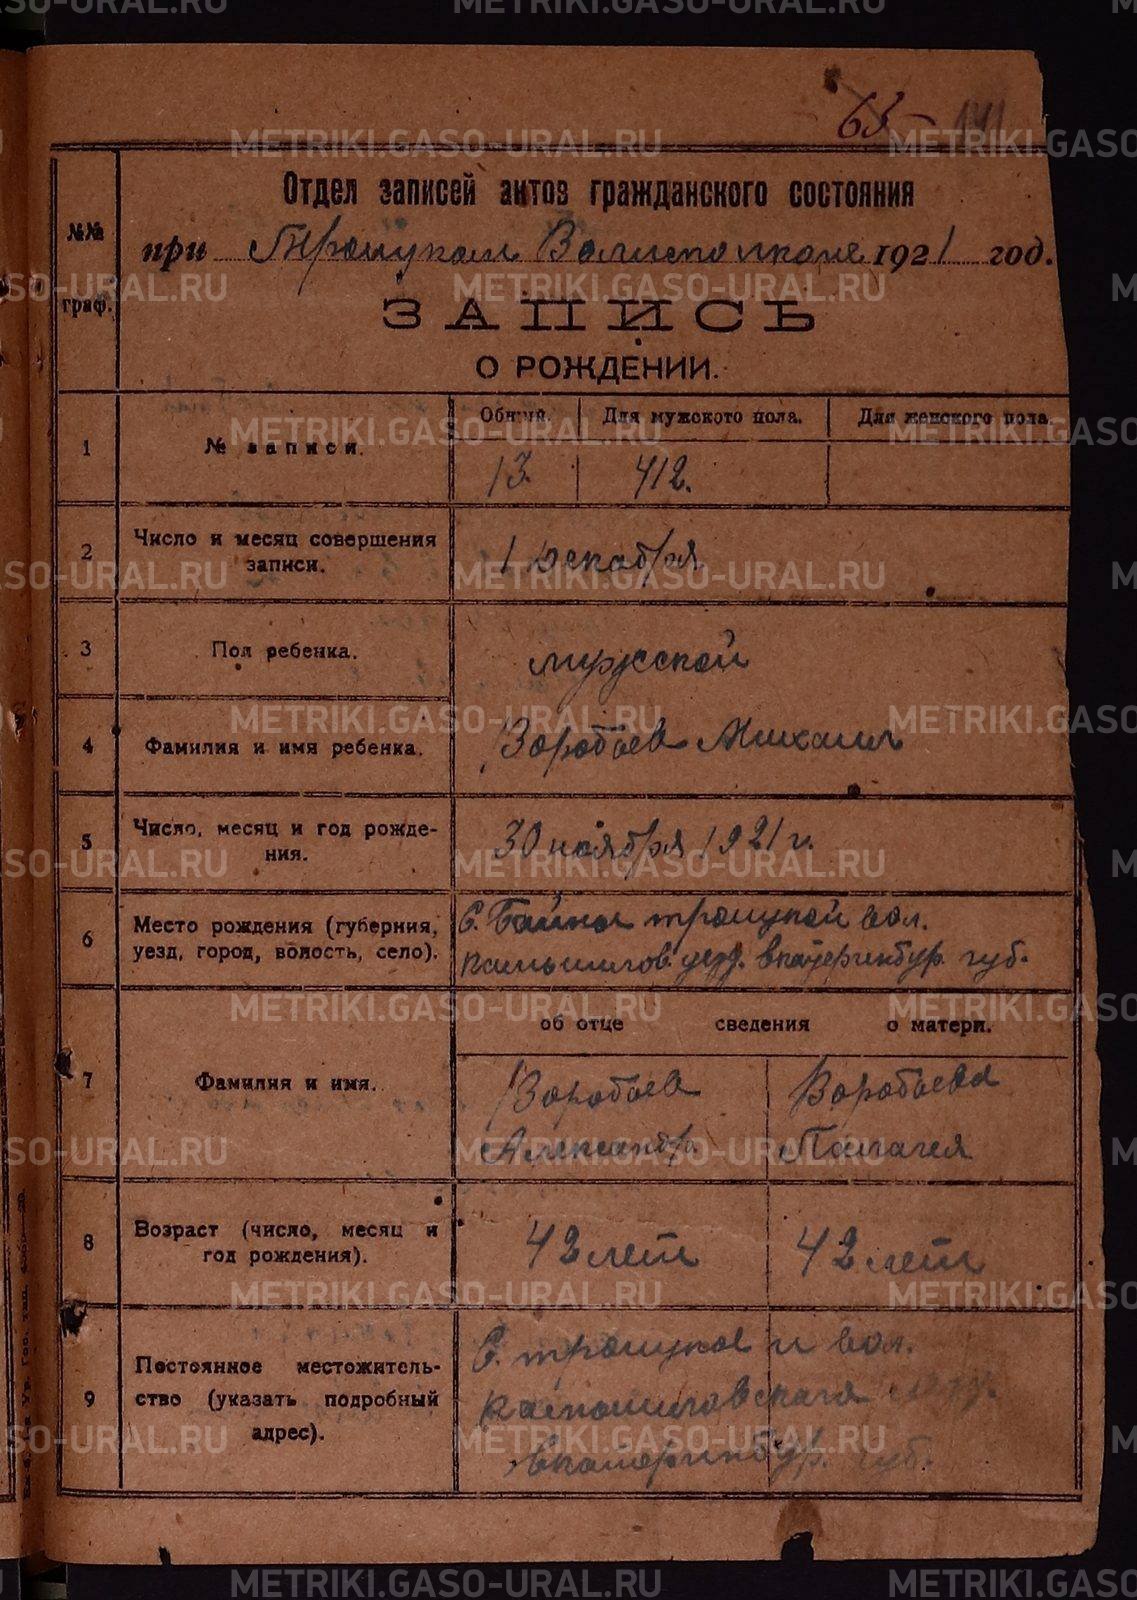 63 - 141
Отдел записей актов гражданского состояния
№№ граф.
при Троицком Волисполкоме 1921 год.
ЗАПИСЬ
О РОЖДЕНИИ.
1 № записи.
Общий. Для мужского пола. Для женского пола
13. 412.
2 Число и месяц совершения записи.
1 декабря
3 Пол ребенка.
мужской
4 Фамилия и имя ребенка.
Воробьев Михаил
5 Число, месяц и год рождения.
30 ноября 1921 г.
6 Место рождения (губерния, уезд, город, волость, село).
С. Байны троицкой вол.
камышлов. уезд. екатеринбур. губ.
об отце сведения о матери.
7 Фамилия и имя.
Воробьев Воробьева
Александр. Пелагея
8 Возраст (число, месяц и год рождения).
42 лет 42 лет
9 Постоянное местожительство (указать подробный адрес).
С. троицкое и вол.
камышловского
екатеринбур. губ.
METRIKI.GASO-URAL.RU